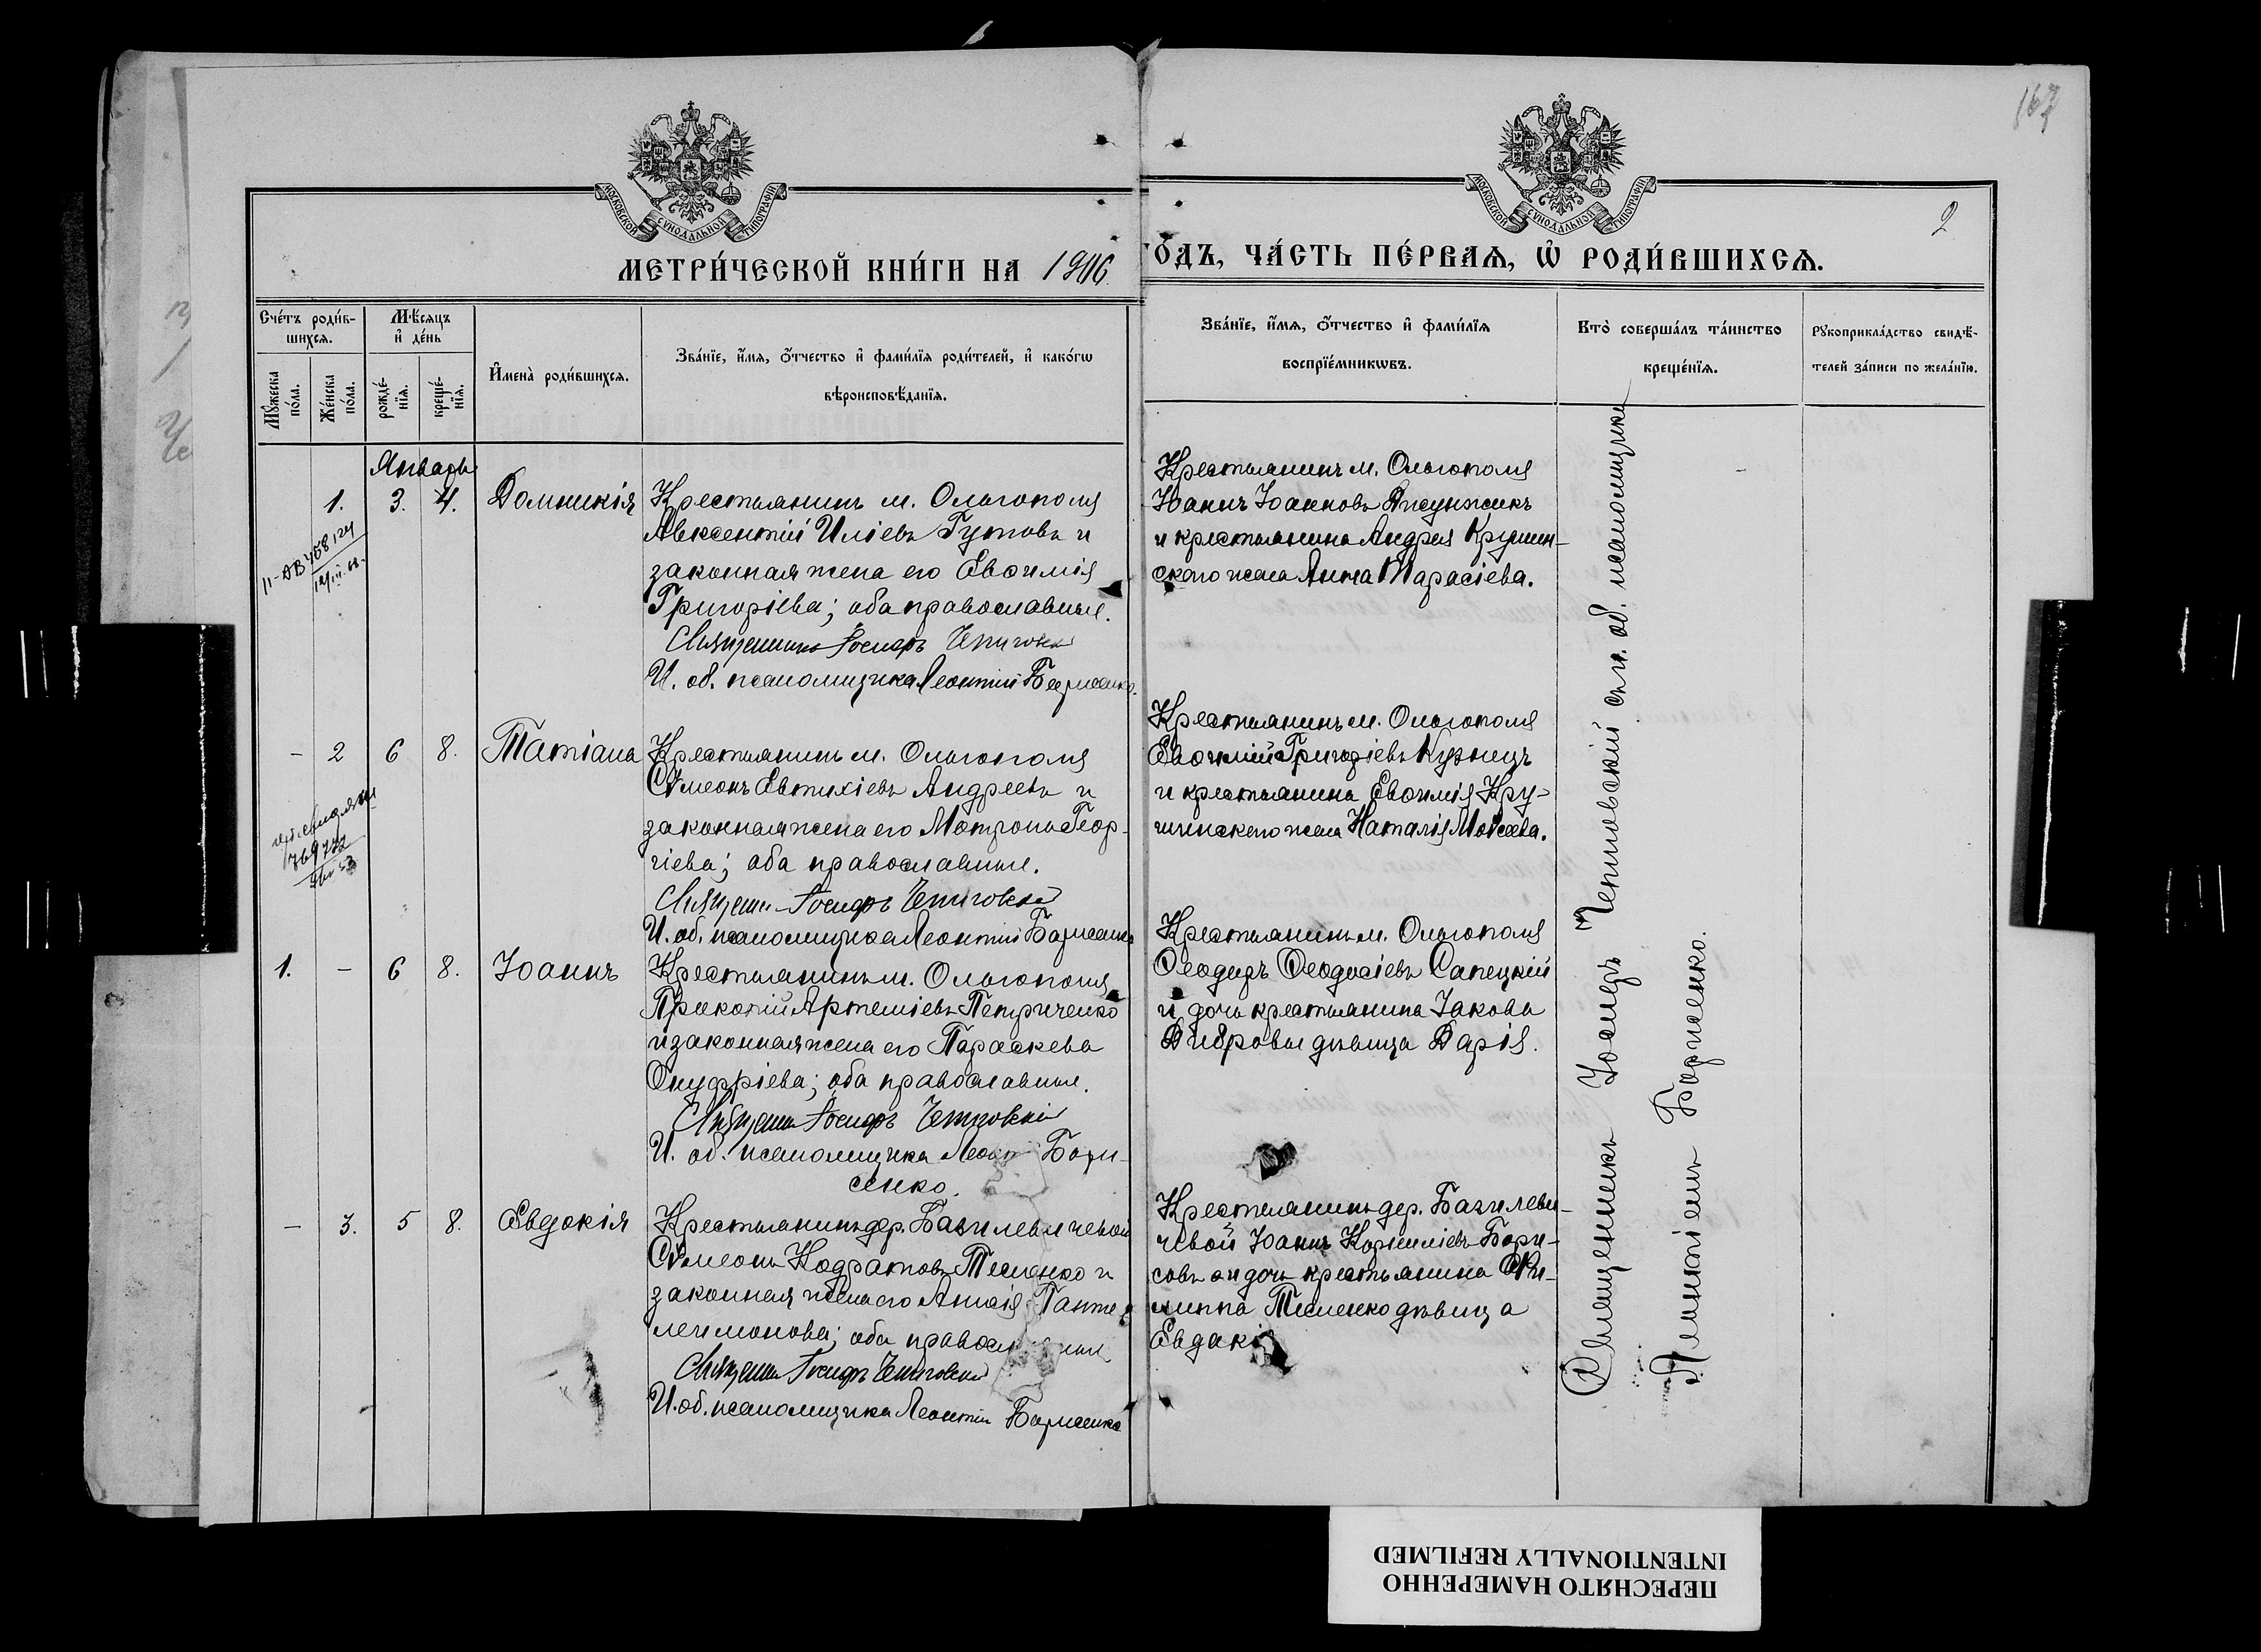 167
2
МОСКОВСКОЙ СѴНОДАЛЬНОЙ ТИПОГРАФІИ
МОСКОВСКОЙ СѴНОДАЛЬНОЙ ТИПОГРАФІИ
МЕТРИ́ЧЕСКОЙ КНИ́ГИ НА 1906
ГО́ДЪ, ЧА́СТЬ ПЕ́РВАѦ, Ѽ РОДИ́ВШИХСѦ.
Сче́тъ роди́в-
шихсѧ.
Мꙋ́жеска
по́ла.
Же́нска
по́ла.
Мѣ́сѧцъ
и҆ де́нь
рожде́-
нїѧ.
креще́-
нїѧ.
И҆мена̀ роди́вшихсѧ.
Зва́нїе, и҆́мѧ, ѻ҆́тчество и҆ фами́лїѧ роди́телей, и҆ како́гѡ
вѣроисповѣ́данїѧ.
Зва́нїе, и҆́мѧ, ѻ҆́тчество и҆ фами́лїѧ
воспрїе́мникѡвъ.
Кто̀ соверша́лъ та́инство
креще́нїѧ.
Рꙋкоприкла́дство свидѣ́-
телей за́писи по жела́нїю.
Январь
1. 3. 4. Домникія
Крестьянинъ м. Ольгополя
Авксентій Иліевъ Гутовъ и
законная жена его Евѳимія
Григоріева; оба православные.
Священникъ Іосифъ
И. об. псаломщика Леонтій Борисенко.
Крестьянинъ м. Ольгополя
Іоаннъ Іоанновъ
и крестьянина Андрея Крушин-
ского жена Анна Тарасіева.
II-АВ 458124
- 2 6 8. Татіана
Крестьянинъ м. Ольгополя
Сѵмеонъ Евтихіевъ Андреевъ и
законная жена его Матрона Геор-
гіева; оба православные.
Священникъ Іосифъ
И. об. псаломщика Леонтій Борисенко
Крестьянинъ м. Ольгополя
Евѳимій Григоріевъ Кузнецъ
и крестьянина Евѳимія Кру-
шинского жена Наталія Моѵсеева.
1. - 6 8. Іоаннъ
Крестьянинъ м. Ольгополя
Прокопій Артеміевъ Петриченко
и законная жена его Параскева
Онуфріева; оба православные.
Священникъ Іосифъ
И. об. псаломщика Леонт Бори-
сенко.
Крестьянинъ м. Ольгополя
Ѳеодоръ Ѳеодосіевъ Сапецкій
и дочь крестьянина Іакова
дѣвица Дарія.
- 3. 5 8. Евдокія
Крестьянинъ дер. Базилевичевой
Сѵмеонъ Кодратовъ Тесленко и
законная жена его Анна Панте-
леимонова; оба православные
Священникъ Іосифъ
И. об. псаломщика Леонтій Борисенко
Крестьянинъ дер. Базилеви-
чевой Іоаннъ Корниліевъ Бори-
совъ и дочь крестьянина Фи-
липпа Тесленко дѣвица
Евдокія
Священникъ Іосифъ съ и. об. псаломщика
Леонтіемъ Борисенко.
ПЕРЕСНЯТО НАМЕРЕННО
INTENTIONALLY REFILMED